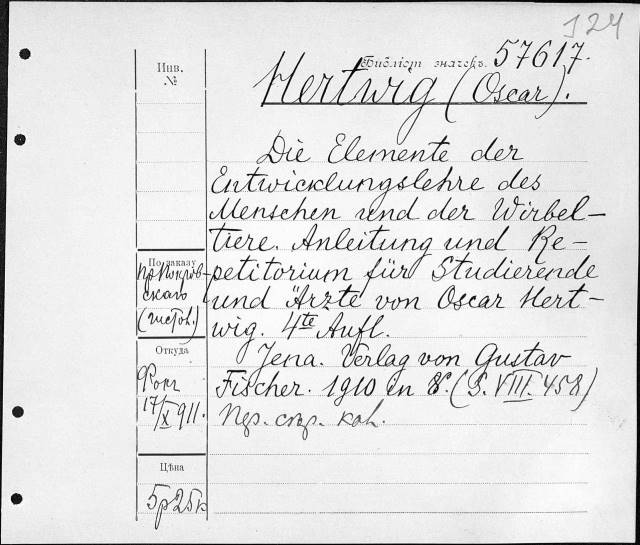 124
Библіот. значекъ. 57617.
Инв.
№
Hertwig (Oscar).
Die Elemente der
Entwicklungslehre des
Menschen und der Wirbel-
tiere. Anleitung und Re-
petitorium für Studierende
und Ärzte von Oscar Hert-
wig. 4te Aufl.
Jena. Verlag von Gustav
Fischer. 1910 in 8º. (S. VIII. 458)
По заказу
пр. Покров-
скаго
(гистол.)
Откуда
17/X 911.
Цѣна
5р 25к